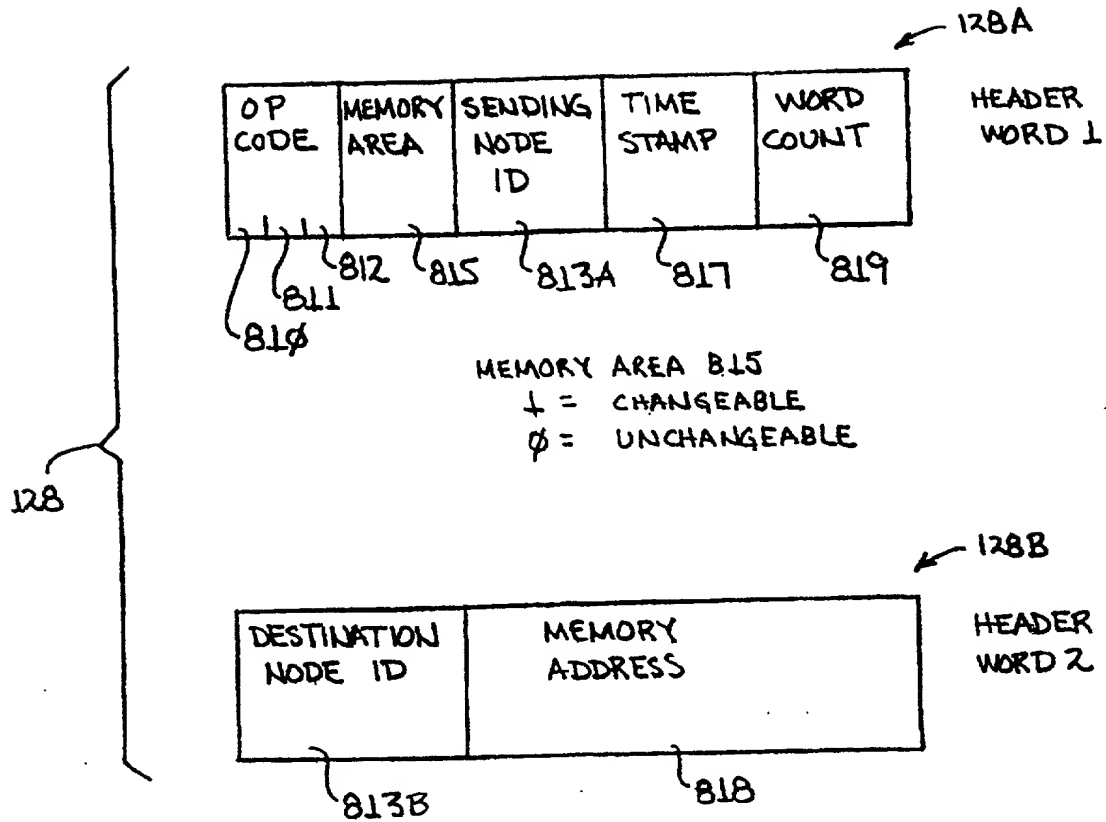 128A
OP CODE
MEMORY AREA
SENDING NODE ID
TIME STAMP
WORD COUNT
HEADER WORD 1
810
811
812
815
813A
817
819
MEMORY AREA 815
1 = CHANGEABLE
0 = UNCHANGEABLE
128
128B
DESTINATION NODE ID
MEMORY ADDRESS
HEADER WORD 2
813B
818